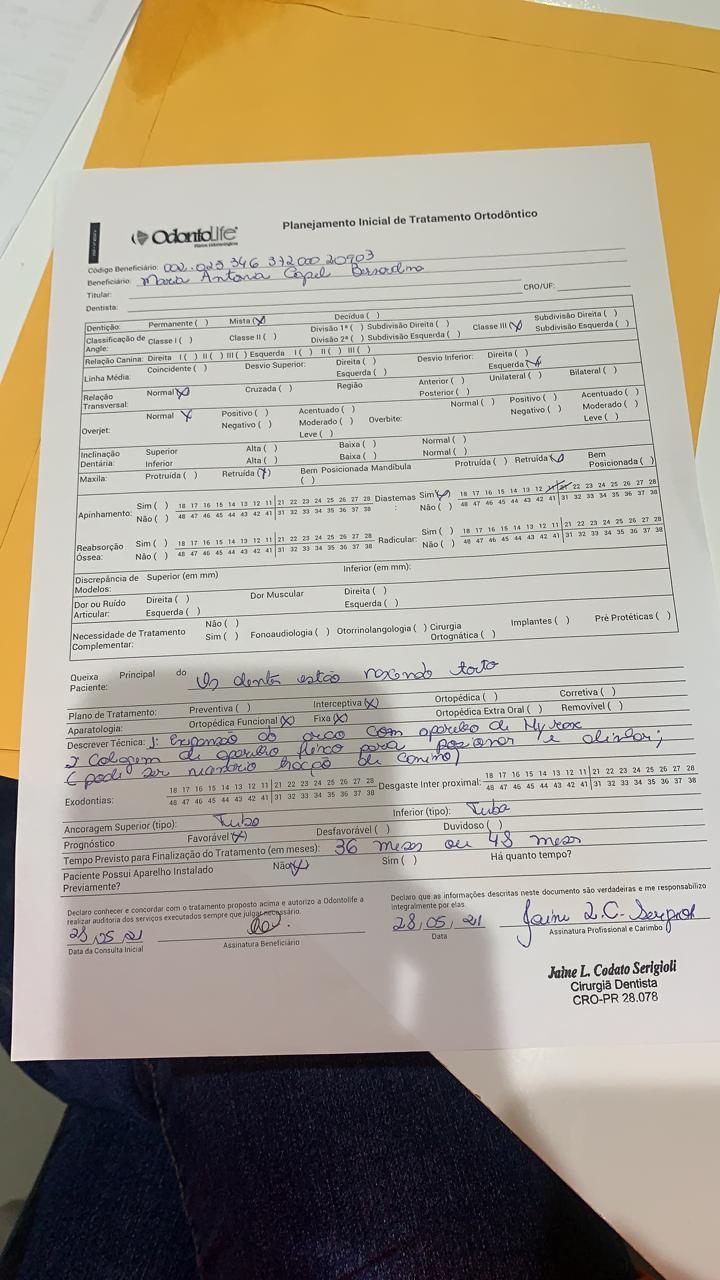 OdontoLife
Planos Odontológicos
Planejamento Inicial de Tratamento Ortodôntico
Código Beneficiário: 002.025 346 372000 20903
Beneficiário: Mara Antonia Capel Bernardino
Titular:
Dentista: CRO/UF:
Dentição: Permanente ( ) Mista (X) Decídua ( )
Classificação de Angle: Classe I ( ) Classe II ( ) Divisão 1ª ( ) Subdivisão Direita ( ) Classe III (X) Subdivisão Direita ( )
Divisão 2ª ( ) Subdivisão Esquerda ( ) Subdivisão Esquerda ( )
Relação Canina: Direita I ( ) II ( ) III ( ) Esquerda I ( ) II ( ) III ( )
Linha Média: Coincidente ( ) Desvio Superior: Direita ( ) Desvio Inferior: Direita ( )
Esquerda ( ) Esquerda (X)
Relação Transversal: Normal (X) Cruzada ( ) Região Anterior ( ) Unilateral ( ) Bilateral ( )
Posterior ( )
Overjet: Normal X Positivo ( ) Acentuado ( ) Overbite: Normal ( ) Positivo ( ) Acentuado ( )
Negativo ( ) Moderado ( ) Negativo ( ) Moderado ( )
Leve ( ) Leve ( )
Inclinação Dentária: Superior Alta ( ) Baixa ( ) Normal ( )
Inferior Alta ( ) Baixa ( ) Normal ( )
Maxila: Protruída ( ) Retruída (X) Bem Posicionada ( ) Mandíbula Protruída ( ) Retruída (X) Bem Posicionada ( )
Apinhamento: Sim ( ) 18 17 16 15 14 13 12 11 21 22 23 24 25 26 27 28 Diastemas: Sim (X) 18 17 16 15 14 13 12 11 21 22 23 24 25 26 27 28
Não ( ) 48 47 46 45 44 43 42 41 31 32 33 34 35 36 37 38 Não ( ) 48 47 46 45 44 43 42 41 31 32 33 34 35 36 37 38
Reabsorção Óssea: Sim ( ) 18 17 16 15 14 13 12 11 21 22 23 24 25 26 27 28 Radicular: Sim ( ) 18 17 16 15 14 13 12 11 21 22 23 24 25 26 27 28
Não ( ) 48 47 46 45 44 43 42 41 31 32 33 34 35 36 37 38 Não ( ) 48 47 46 45 44 43 42 41 31 32 33 34 35 36 37 38
Discrepância de Modelos: Superior (em mm) Inferior (em mm):
Dor ou Ruído Articular: Direita ( ) Dor Muscular Direita ( )
Esquerda ( ) Esquerda ( )
Necessidade de Tratamento Complementar: Não ( )
Sim ( ) Fonoaudiologia ( ) Otorrinolangologia ( ) Cirurgia Ortognática ( ) Implantes ( ) Pré Protéticas ( )
Queixa Principal do Paciente: Os dentes estão nascendo torto
Plano de Tratamento: Preventiva ( ) Interceptiva (X) Ortopédica ( ) Corretiva ( )
Aparatologia: Ortopédica Funcional (X) Fixa (X) Ortopédica Extra Oral ( ) Removível ( )
Descrever Técnica: 1: Expansão do arco com aparelho de Hyrax
2º Colagem de aparelho fixo para posionar e alinhar;
( pode ser necessário tração de canino)
Exodontias: 18 17 16 15 14 13 12 11 21 22 23 24 25 26 27 28 Desgaste Inter proximal: 18 17 16 15 14 13 12 11 21 22 23 24 25 26 27 28
48 47 46 45 44 43 42 41 31 32 33 34 35 36 37 38 48 47 46 45 44 43 42 41 31 32 33 34 35 36 37 38
Ancoragem Superior (tipo): Tubo Inferior (tipo): Tubo
Prognóstico Favorável (X) Desfavorável ( ) Duvidoso ( )
Tempo Previsto para Finalização do Tratamento (em meses): 36 meses ou 48 meses
Paciente Possui Aparelho Instalado Previamente? Não (X) Sim ( ) Há quanto tempo?
Declaro conhecer e concordar com o tratamento proposto acima e autorizo a Odontolife a
realizar auditoria dos serviços executados sempre que julgar necessário.
28 05 21
Data da Consulta Inicial Assinatura Beneficiário
Declaro que as informações descritas neste documento são verdadeiras e me responsabilizo
integralmente por elas
28, 05, 21 Jaine L.C. Serigioli
Data Assinatura Profissional e Carimbo
Jaine L. Codato Serigioli
Cirurgiã Dentista
CRO-PR 28.078